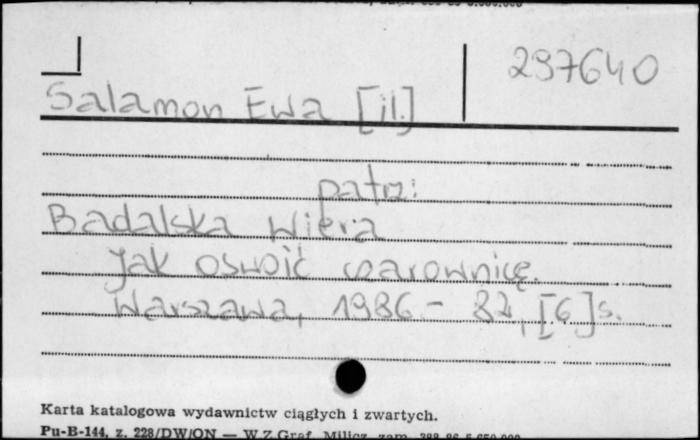 297640
Salamon Ewa [il.]
patrz:
Badalska Wiera
Jak oswoić czarownicę.
Warszawa, 1986. - 82, [6] s.
Karta katalogowa wydawnictw ciągłych i zwartych.
Pu-B-144, z. 228/DW/ON — W.Z.Graf. Milicz, zam.